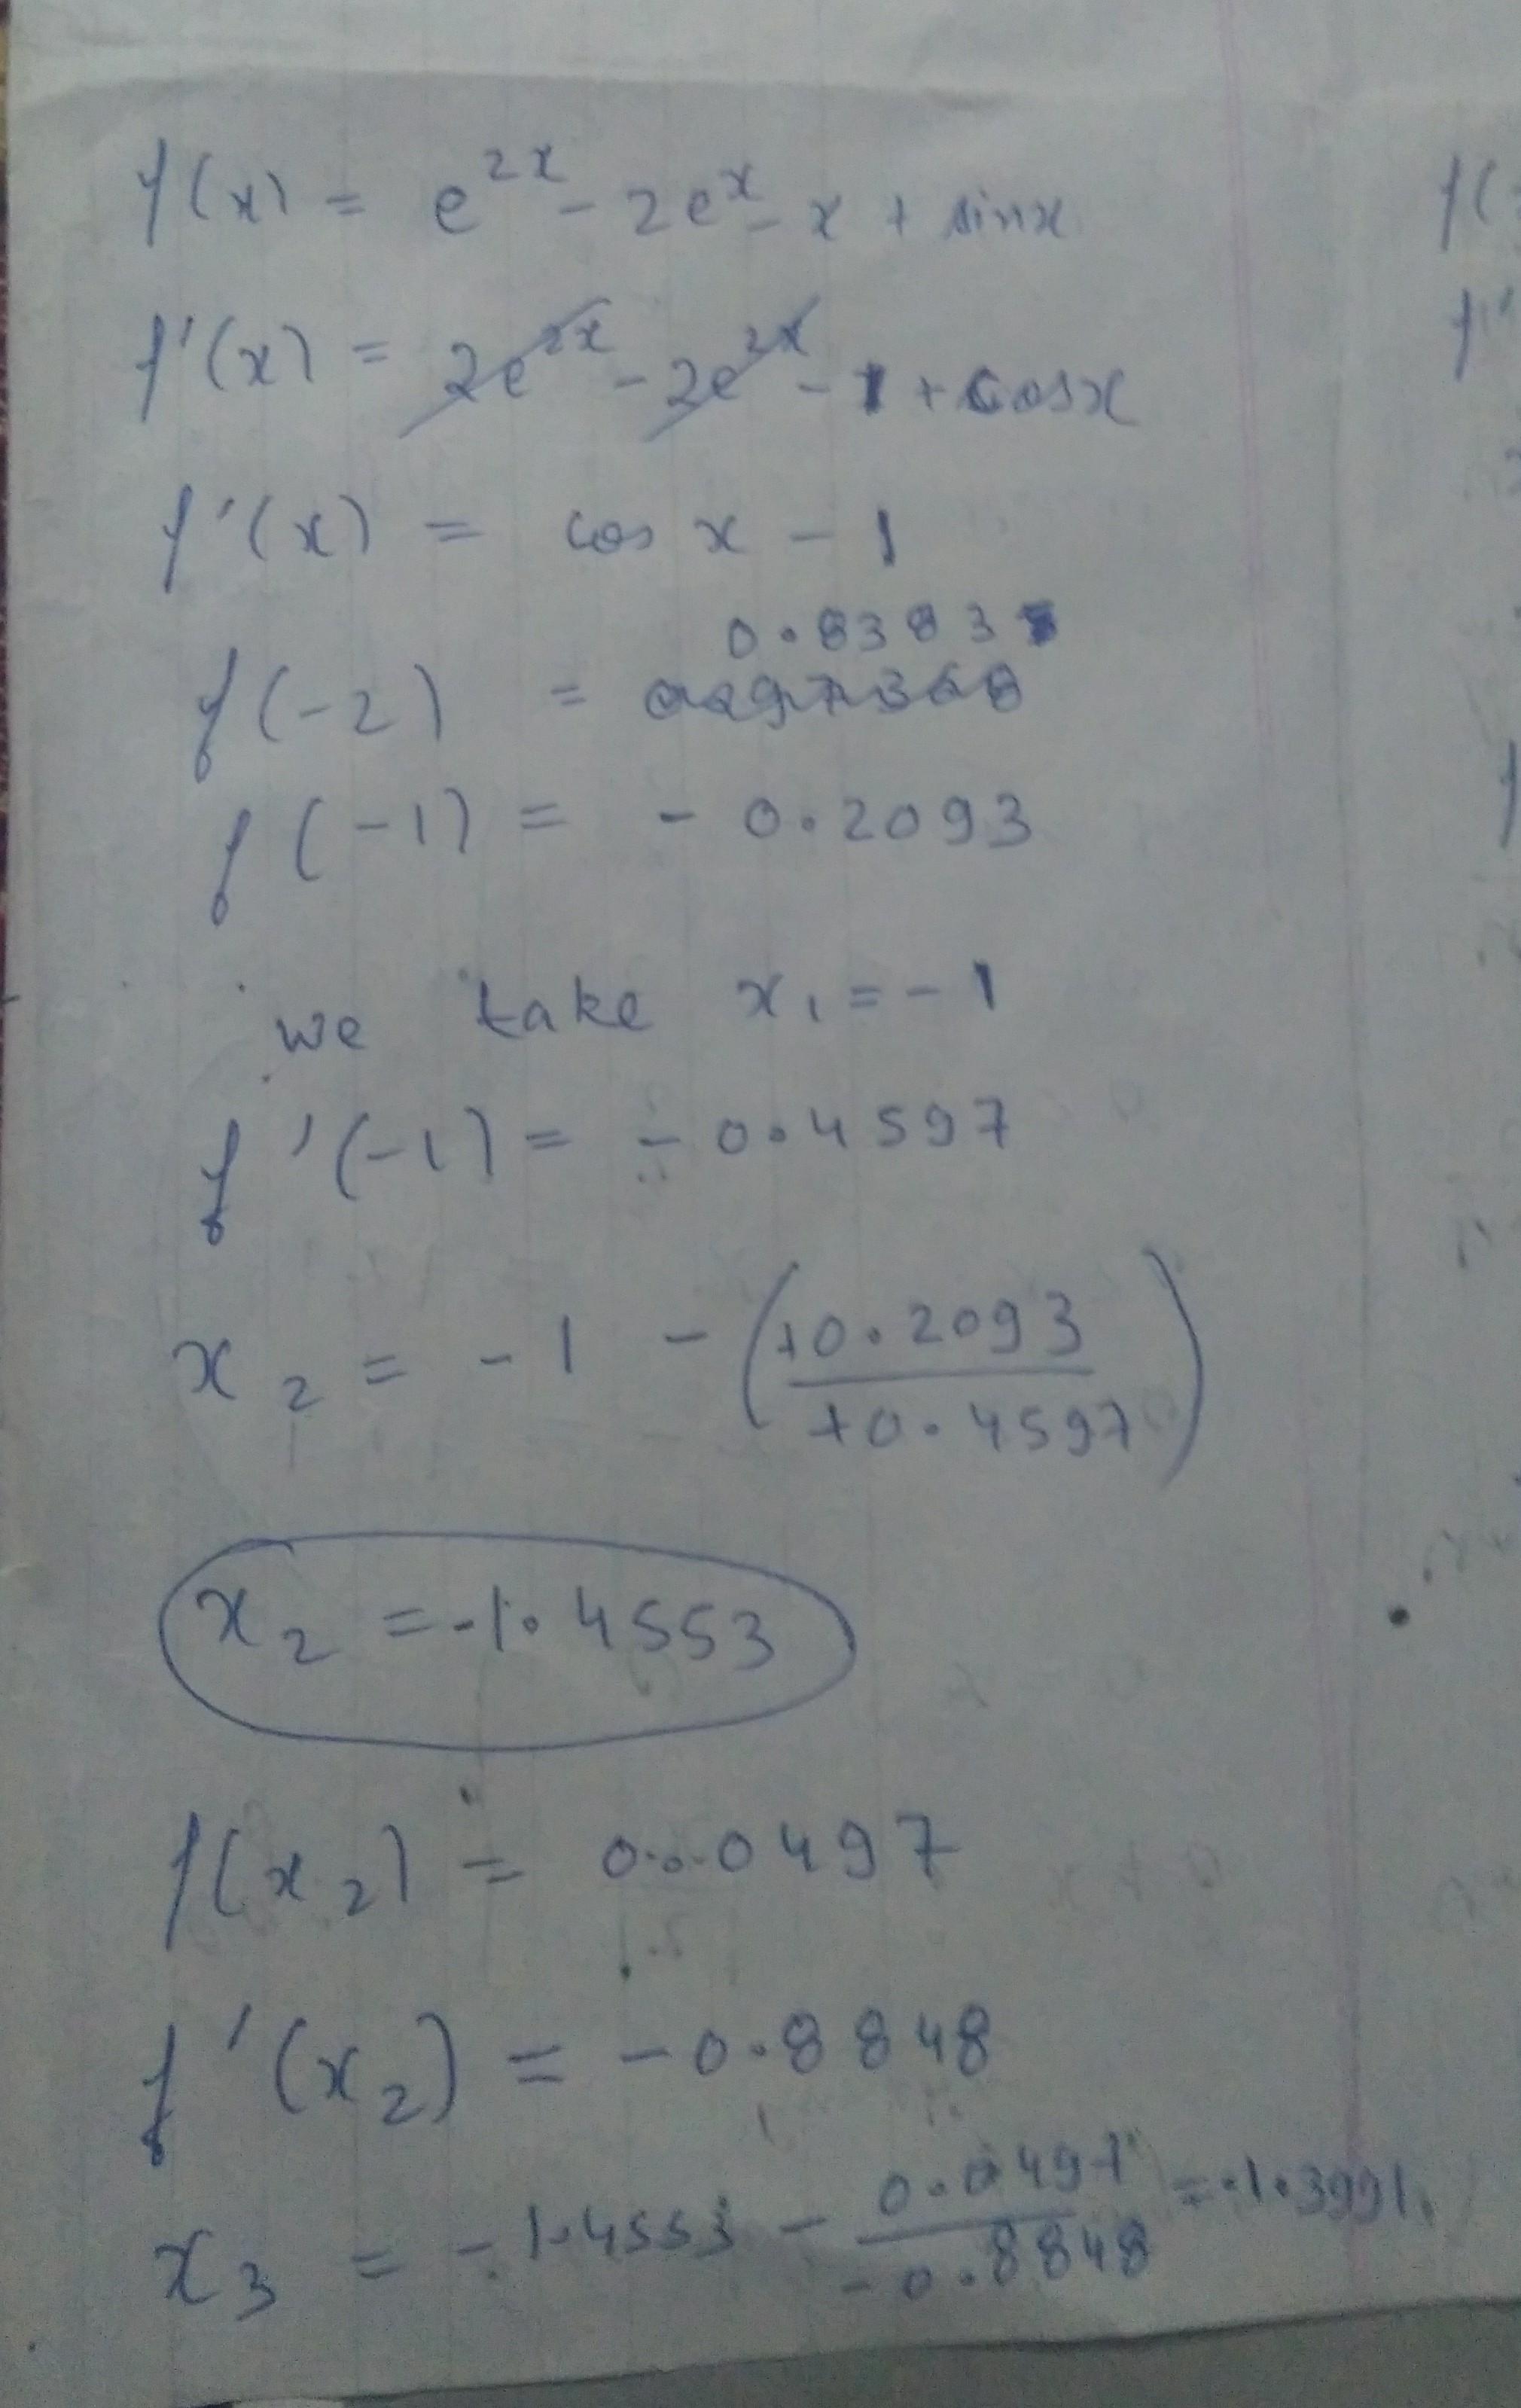 f(x) = e^2x - 2e^x - x + sinx
f'(x) = 2e^2x - 2e^2x - 1 + cosx
f'(x) = cos x - 1
0.8383
f(-2) =
f(-1) = - 0.2093
we take x₁ = - 1
f'(-1) = - 0.4597
x₂ = - 1 - (+0.2093 / +0.4597)
x₂ = -1.4553
f(x₂) = 0.0497
f'(x₂) = -0.8848
x₃ = -1.4553 - 0.0497 / -0.8848 = -1.3991